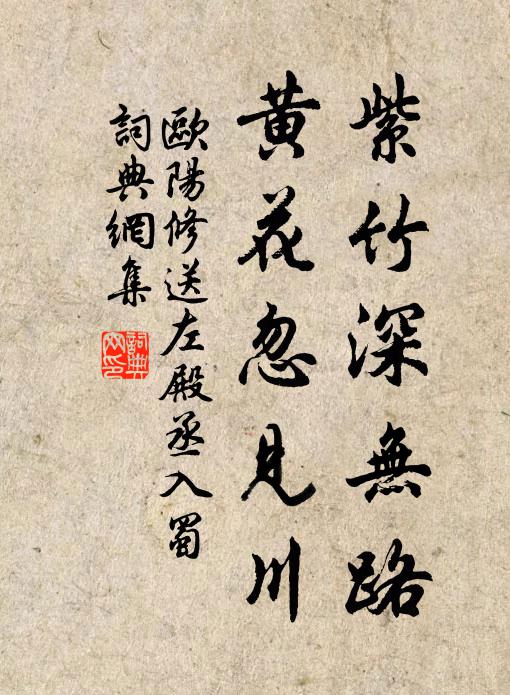 紫竹深無路
黃花忽見川
歐陽修送左殿丞入蜀
詞典網集
詞典网印